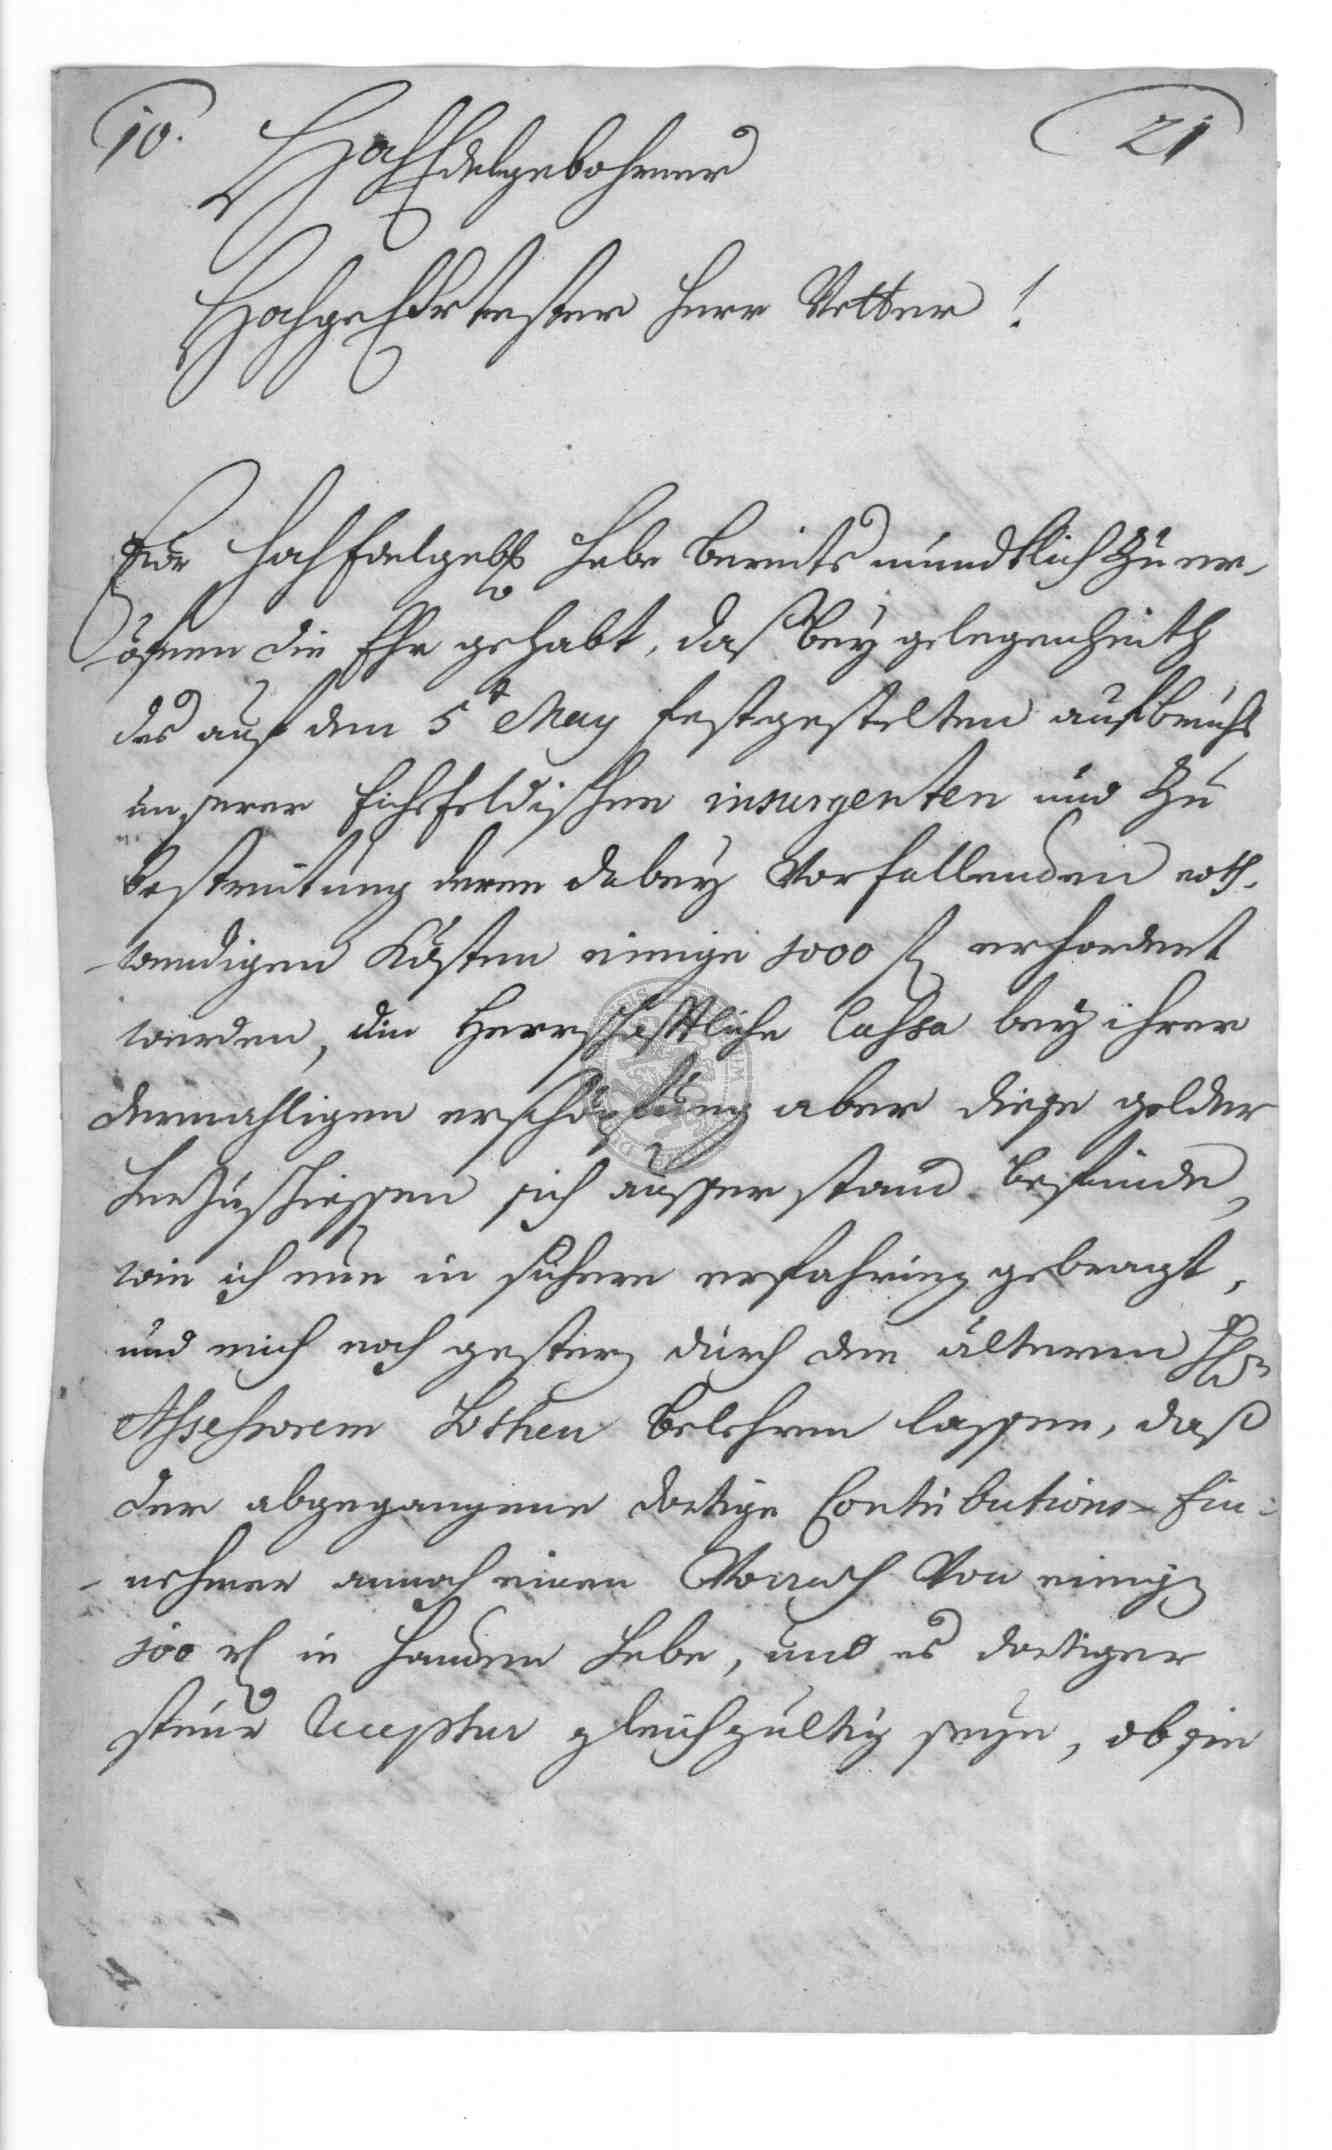 10. 21
HochEdelgebohrner
HochgeEhrtester Herr Vetter!
Euer HochEdelgeb. habe bereits mündtlich zu er-
öfnen die Ehr gehabt, daß bey gelegenheith
des auf den 5t May festgestelten aufbruchs
unserer Eichsfeldischen insurgenten und zu
bestreitung deren dabey Vorfallenden noth-
wendigen Kösten einige 1000 f erfordert
werden, die Herrschafftliche Cassa bey ihrer
dermahligen erschöpfung aber diese gelder
herzuschiessen sich ausser stand befinde,
wie ich nun in sichere erfahrung gebragt,
und mich noch gestern durch den älteren H
Assessorem Lothen belehren lassen, daß
der abgegangene dortige Contributions-Ein-
nehmer annoch einen Vorrath Von einigen
100 rt in Handen habe, und es dortiger
steuer Receptur gleichgültig seye, ob sie